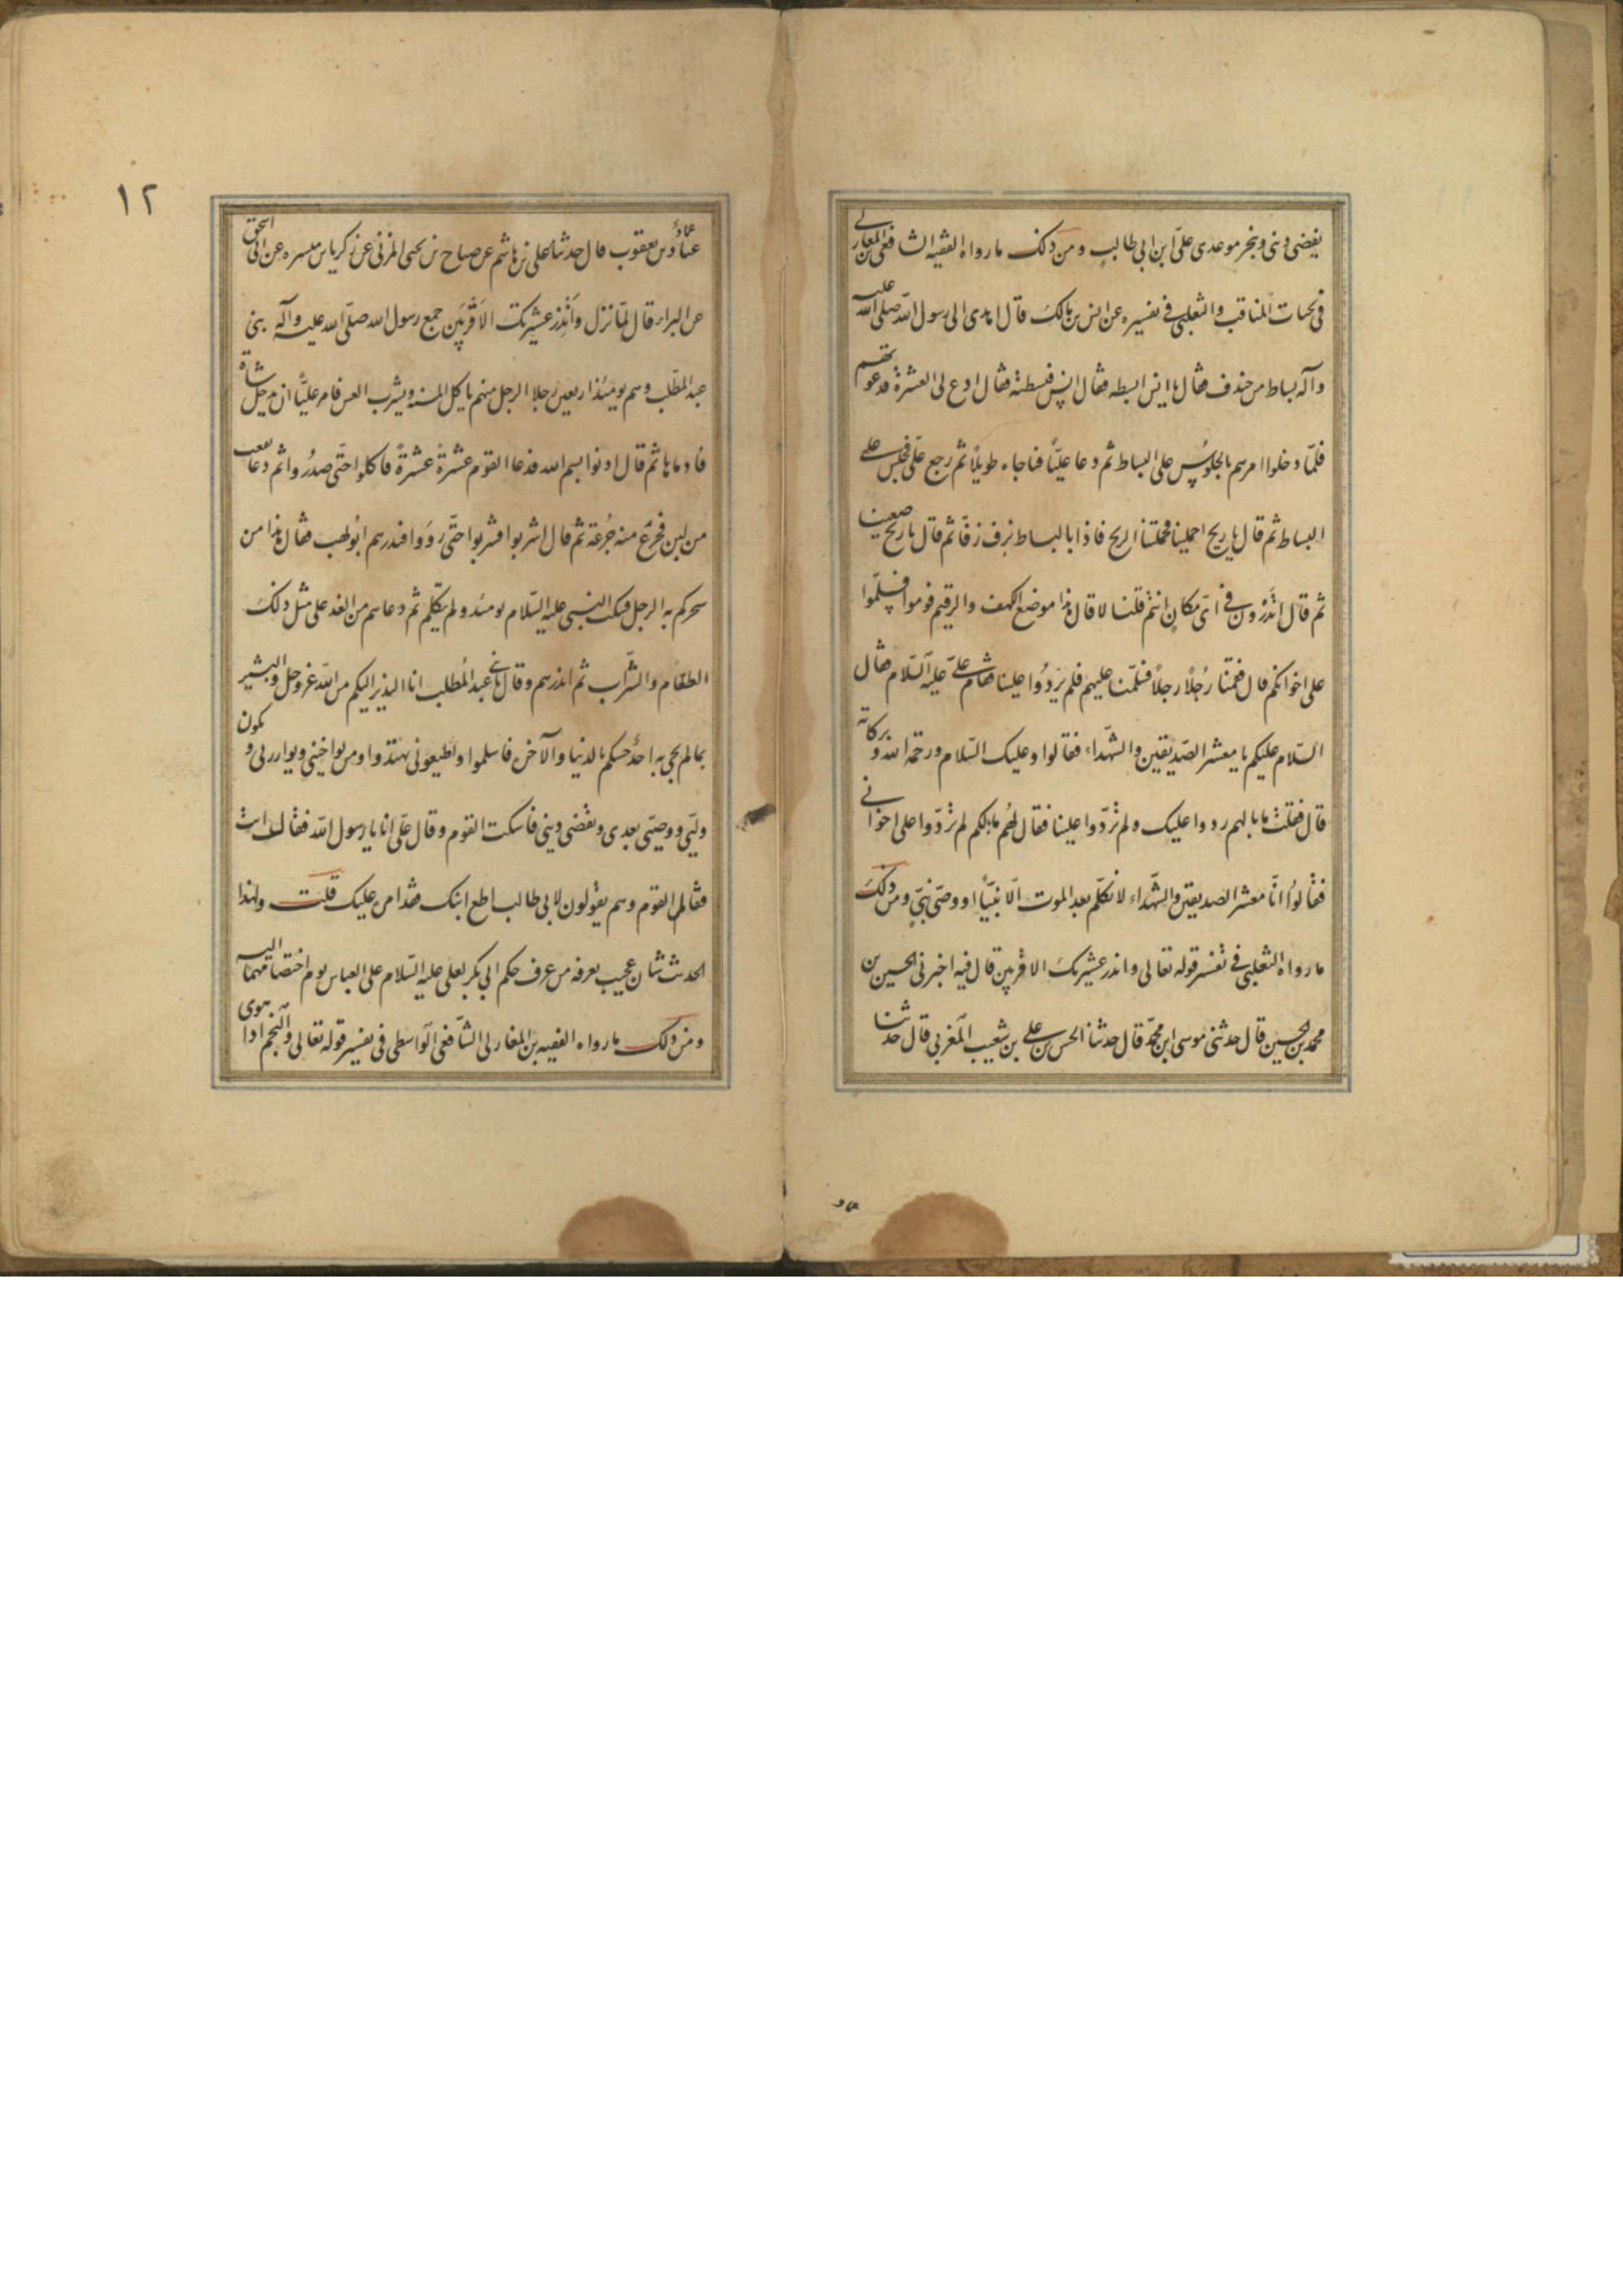 يقضى دينى وينجز موعدى علىّ ابن ابى طالب ومن ذلك ما رواه الفقيه الشافعى بن المغازلى
فى كتاب المناقب والثعلبى فى تفسيره عن انس بن مالك قال اهدى الى رسول الله صلّى الله عليه
وآله بساط من خندف فقال يا انس ابسطه فقال انس فبسطته فقال ادع لى العشرة فدعوتهم
فلمّا دخلوا امرهم بالجلوس على البساط ثم دعا عليّاً فناجاه طويلاً ثم رجع علىّ فجلس على
البساط ثم قال يا ريح احملينا فحملتنا الريح فاذا بالبساط يزف زفّاً ثم قال يا ريح ضعينا
ثم قال اتدرون فى اىّ مكان انتم قلنا لا قال هذا موضع الكهف والرقيم قوموا فسلّموا
على اخوانكم قال فقمنا رجلاً رجلاً فسلّمنا عليهم فلم يردّوا علينا فقام علىّ عليه السّلام فقال
السّلام عليكم يا معشر الصّديقين والشّهداء فقالوا وعليك السّلام ورحمة الله وبركاته
قال فقلت ما بالهم ردوا عليك ولم يردّوا علينا فقال لهم ما بالكم لم تردّوا على اخوانى
فقالوا انّا معشر الصديقين والشّهداء لا نكلّم بعد الموت الّا نبيّاً او وصىّ نبىّ ومن ذلك
ما رواه الثعلبى فى تفسير قوله تعالى وانذر عشيرتك الاقربين قال فيه اخبرنى الحسين بن
محمد بن الحسين قال حدثنى موسى ابن محمّد قال حدثنا الحسن بن على بن شعيب المغربى قال حدثنا
عبّاد بن يعقوب قال حدثنا على بن هاشم عن صباح بن يحيى المزنى عن زكريا بن ميسره عن ابى اسحق
عن البراء قال لمّا نزل وأنذر عشيرتك الأقربين جمع رسول الله صلّى الله عليه وآله بنى
عبد المطّلب وهم يومئذ اربعين رجلا الرجل منهم ياكل المسنه ويشرب العس فامر عليّاً ان يدخل شاة
فادمها ثم قال ادنوا بسم الله فدعا القوم عشرة عشرة فاكلوا حتّى صدروا ثم دعا بقعب
من لبن فجرع منه جرعة ثم قال اشربوا فشربوا حتّى رووا فبدرهم ابو لهب فقال هذا من
سحركم به الرجل فسكت النبى عليه السّلام يومئذ ولم يتكلم ثم دعاهم من الغد على مثل ذلك
الطعام والشّراب ثم انذرهم وقال يا بنى عبد المطلب انا النذير اليكم من الله عزوجل والبشير
بما لم يجى به احد جئتكم بالدنيا والآخرة فاسلموا واطيعونى تهتدوا ومن يواخينى ويوازرنى ويكون
وليّى ووصيّى بعدى ويقضى دينى فاسكت القوم وقال علىّ انا يا رسول الله فقال انت
فقام القوم وهم يقولون لابى طالب اطع ابنك فقد امر عليك قلت ولهذا
الحديث شان عجيب يعرفه من عرف حكم ابى بكر لعلى عليه السّلام على العباس يوم اختصامهما اليه
ومن ذلك ما رواه الفقيه بن المغازلى الشّافعى الواسطى فى تفسير قوله تعالى والنجم اذا هوى
١٢